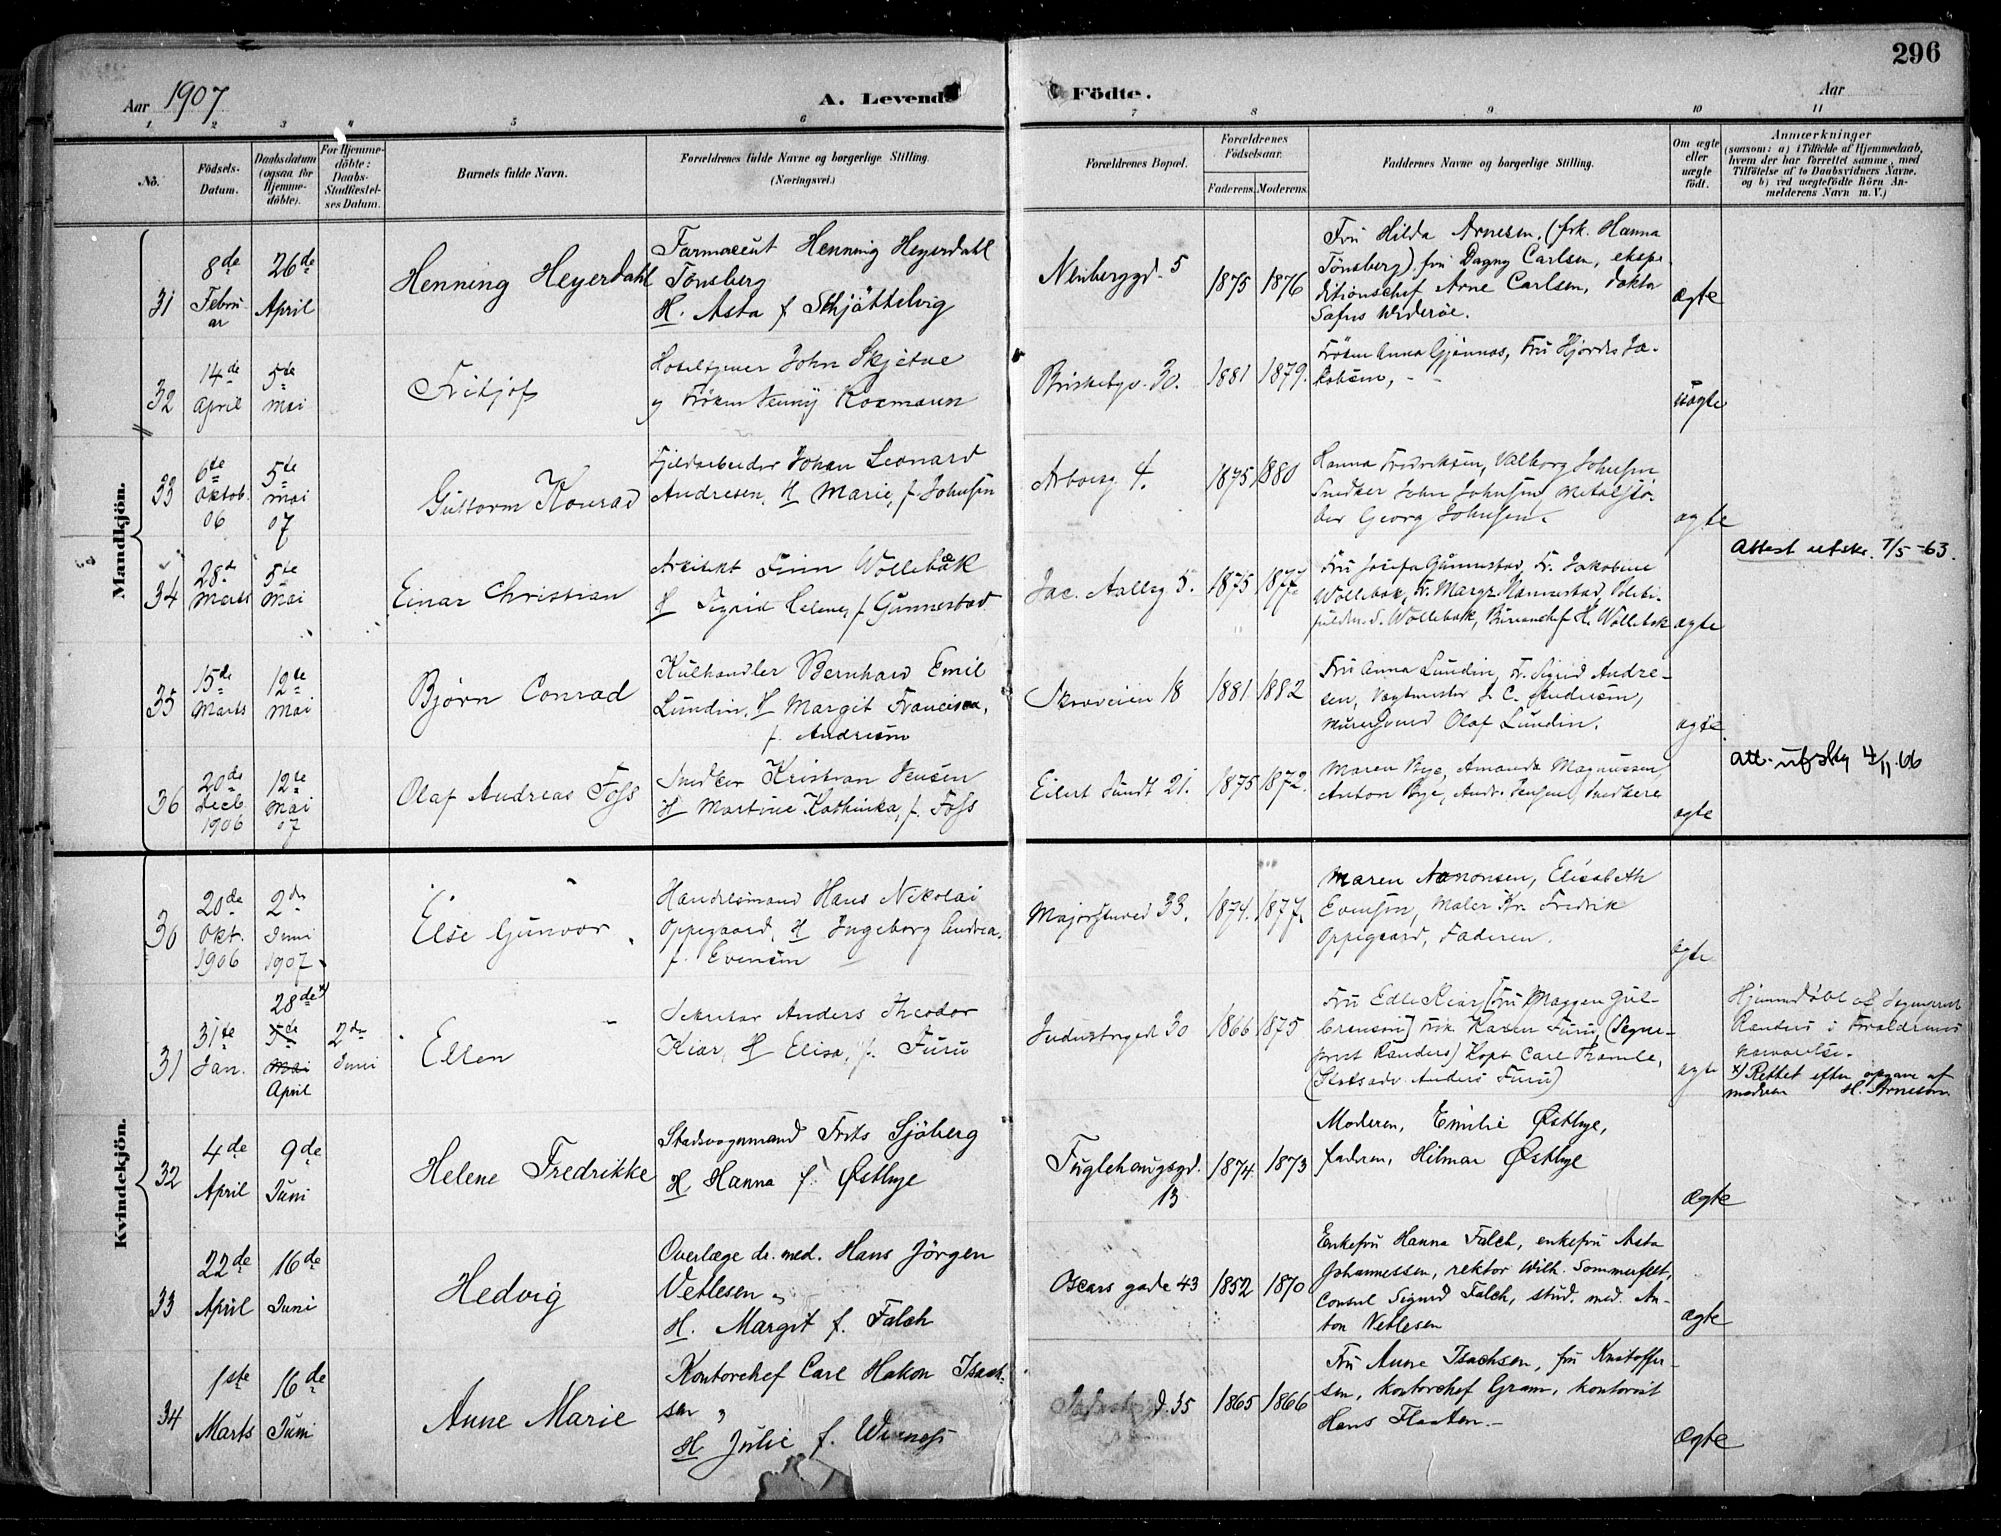 296
Aar 1907
A. Levende
Födte.
Aar
1 2 3 4 5 6 7 8 9 10 11
No.
Födsels-
Datum.
Daabsdatum
(ogsaa for
Hjemme-
döbte).
For Hjemme-
döbte:
Daabs-
Stadfæstel-
ses Datum.
Barnets fulde Navn.
Forældrenes fulde Navne og borgerlige Stilling.
(Næringsvei.)
Forældrenes Bopæl.
Forældrenes
Födselsaar.
Faderens. Moderens.
Faddernes Navne og borgerlige Stilling.
Om ægte
eller
uægte
födt.
Anmærkninger
(saasom: a) i Tilfælde af Hjemmedaab,
hvem der har forrettet samme, med
Tilföielse af to Daabsvidners Navne,
og b) ved uægtefödte Börn An-
melderens Navn m. V.)
Mandkjön.
31
8de
Febru-
ar
26de
April
Henning Heyerdahl
Farmaceut Henning Heyerdahl
Tönsberg
H. Asta f Skjöttelvig
5
1875 1876
Fru Hilda Arnesen, (frk. Hanna
Tönsberg) fru Dagny Carlsen, ekspe-
ditionschef Arne Carlsen, doktor
Sofus Widerøe.
ægte
32
14de
April
5te
Mai
Fritjof
John Skjetne
og Frøken Jenny Kosmann
Briskebyv. 30.
1881 1879.
Frøken Anna Gjønnes, Fru Hjordis Ja-
kobsen, - -
uægte
33
6te
Oktob.
06
5te
Mai
07
Guttorm Konrad
Johan Leonard
Andresen, H Marie, f. Johnsen
Arboesg 4.
1875 1880
Hanna Fredriksen, Valborg Johnsen
Snedker John Johnsen, Metalstø-
ber Georg Johnsen.
ægte
34
28de
Marts
5te
Mai
Einar Christian
Arkitekt Finn Wollebæk
H Sigrid Helene, f. Gunnestad
Jac. Aallsg 5.
1875 1877
Fru Josefa Gunnestad, Fr. Jakobine
Wollebæk, Fr. Margr. Mannestad, Politi-
fuldm. S. Wollebæk, Bureauchef H. Wollebæk
ægte
Attest utskr. 7/5-63.
35
15de
Marts
12te
Mai
Bjørn Conrad
Kulhandler Bernhard Emil
Lundin, H Margit Francisca,
f. Andresen
Skovveien 18
1881 1882
Fru Anna Lundin, Fr. Sigrid Andre-
sen, Vagtmester S. C. Andresen,
Murersvend Olaf Lundin.
ægte.
36
20de
Decb
1906
12te
Mai
07
Olaf Andreas Foss
Snedker Kristian Jensen
H Martine Kathinka, f. Foss
Eilert Sundt 21.
1875 1872.
Maren Bye, Amanda Magnussen,
Anton Bye, Andr. Jensen, Snedkere
ægte
Att. utskr. 4/11.66
Kvindekjön.
30
20de
Okt.
1906
2den
Juni
1907
Else Gunvor
Handelsmand Hans Nikolai
Oppegaard, H Ingeborg Andrea,
f. Evensen
Majorstuved 33.
1874. 1877.
Maren Aanonsen, Elisabeth
Evensen, Maler Kr. Fredrik
Oppegaard, Faderen.
ægte
31
31te
Jan.
28de x)
5de
Mai
April
2den
Juni
Ellen
Sekretær Anders Theodor
Kiær, H Elisa, f. Furu
Industrigad 30
1866 1875
Fru Edle Kiær (Fru Maggen Gul-
brenson) Frk. Karen Furu, (Sogne-
prest Randers) Kapt Carl Thamle,
(Statsadv Anders Furu)
ægte
Hjemmedøbt af Sogneprest
Randers i Forældrenes
nærværelse.
x) Rettet efter opgave af
moderen H. Arnesen
32
4de
April
9de
Juni
Helene Fredrikke
Stadsvognmand Frits Sjöberg
H Hanna f. Østbye
Fuglehaugsgd.
13
1874 1873
Moderen, Emilie Østbye,
faderen, Hilmar Østbye
ægte
33
22de
April
16de
Juni
Hedvig
Overlæge dr. med. Hans Jörgen
Vetlesen,
H. Margit f. Falch
Oscars gade 43
1852 1870
Enkefru Hanna Falch, enkefru Asta
Johannessen, rektor Wilh. Sommerfelt,
Consul Sigurd Falch, stud. med. An-
ton Vetlesen
ægte
34
1ste
Marts
16de
Juni
Anne Marie
Kontorchef Carl Hakon Isach-
sen,
H Julie f.
35
1865 1866
Fru Anne Isachsen, fru Kristoffer-
sen, kontorchef Gram, kontorist
Hans Flaaten.-
ægte